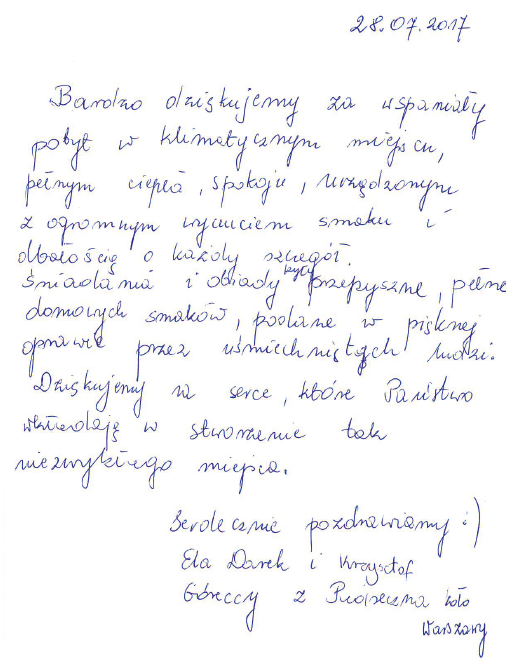 28.07.2017
Bardzo dziękujemy za wspaniały
pobyt w klimatycznym miejscu,
pełnym ciepła, spokoju, urządzonym
z ogromnym wyczuciem smaku i
dbałością o każdy szczegół.
Śniadania i obiady były przepyszne, pełne
domowych smaków, podane w pięknej
oprawie przez uśmiechniętych ludzi.
Dziękujemy za serce, które Państwo
wkładają w stworzenie tak
niezwykłego miejsca.
Serdecznie pozdrawiamy :)
Ela Darek i Krzysztof
Góreccy z Piaseczna koło
Warszawy